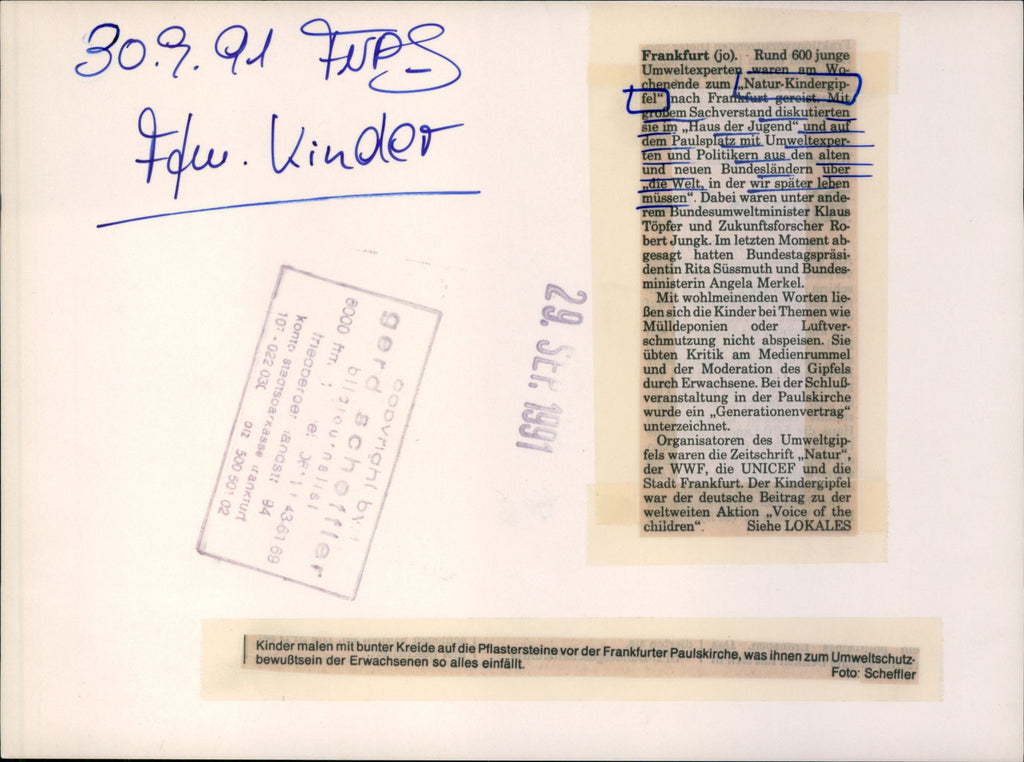 30.9.91
Kinder
Frankfurt (jo). Rund 600 junge
Umweltexperten waren am Wo-
chenende zum „Natur-Kindergip-
fel“ nach Frankfurt gereist. Mit
großem Sachverstand diskutierten
sie im „Haus der Jugend“ und auf
dem Paulsplatz mit Umweltexper-
ten und Politikern aus den alten
und neuen Bundesländern über
„die Welt, in der wir später leben
müssen“. Dabei waren unter ande-
rem Bundesumweltminister Klaus
Töpfer und Zukunftsforscher Ro-
bert Jungk. Im letzten Moment ab-
gesagt hatten Bundestagspräsi-
dentin Rita Süssmuth und Bundes-
ministerin Angela Merkel.
Mit wohlmeinenden Worten lie-
ßen sich die Kinder bei Themen wie
Mülldeponien oder Luftver-
schmutzung nicht abspeisen. Sie
übten Kritik am Medienrummel
und der Moderation des Gipfels
durch Erwachsene. Bei der Schluß-
veranstaltung in der Paulskirche
wurde ein „Generationenvertrag“
unterzeichnet.
Organisatoren des Umweltgip-
fels waren die Zeitschrift „Natur“,
der WWF, die UNICEF und die
Stadt Frankfurt. Der Kindergipfel
war der deutsche Beitrag zu der
weltweiten Aktion „Voice of the
children“. Siehe LOKALES
copyright by
gerd scheffler
bildjournalist
6000 ffm.
friedberger landstr 94
konto stadtsparkasse frankfurt
29. SEP. 1991
Kinder malen mit bunter Kreide auf die Pflastersteine vor der Frankfurter Paulskirche, was ihnen zum Umweltschutz-
bewußtsein der Erwachsenen so alles einfällt.
Foto: Scheffler